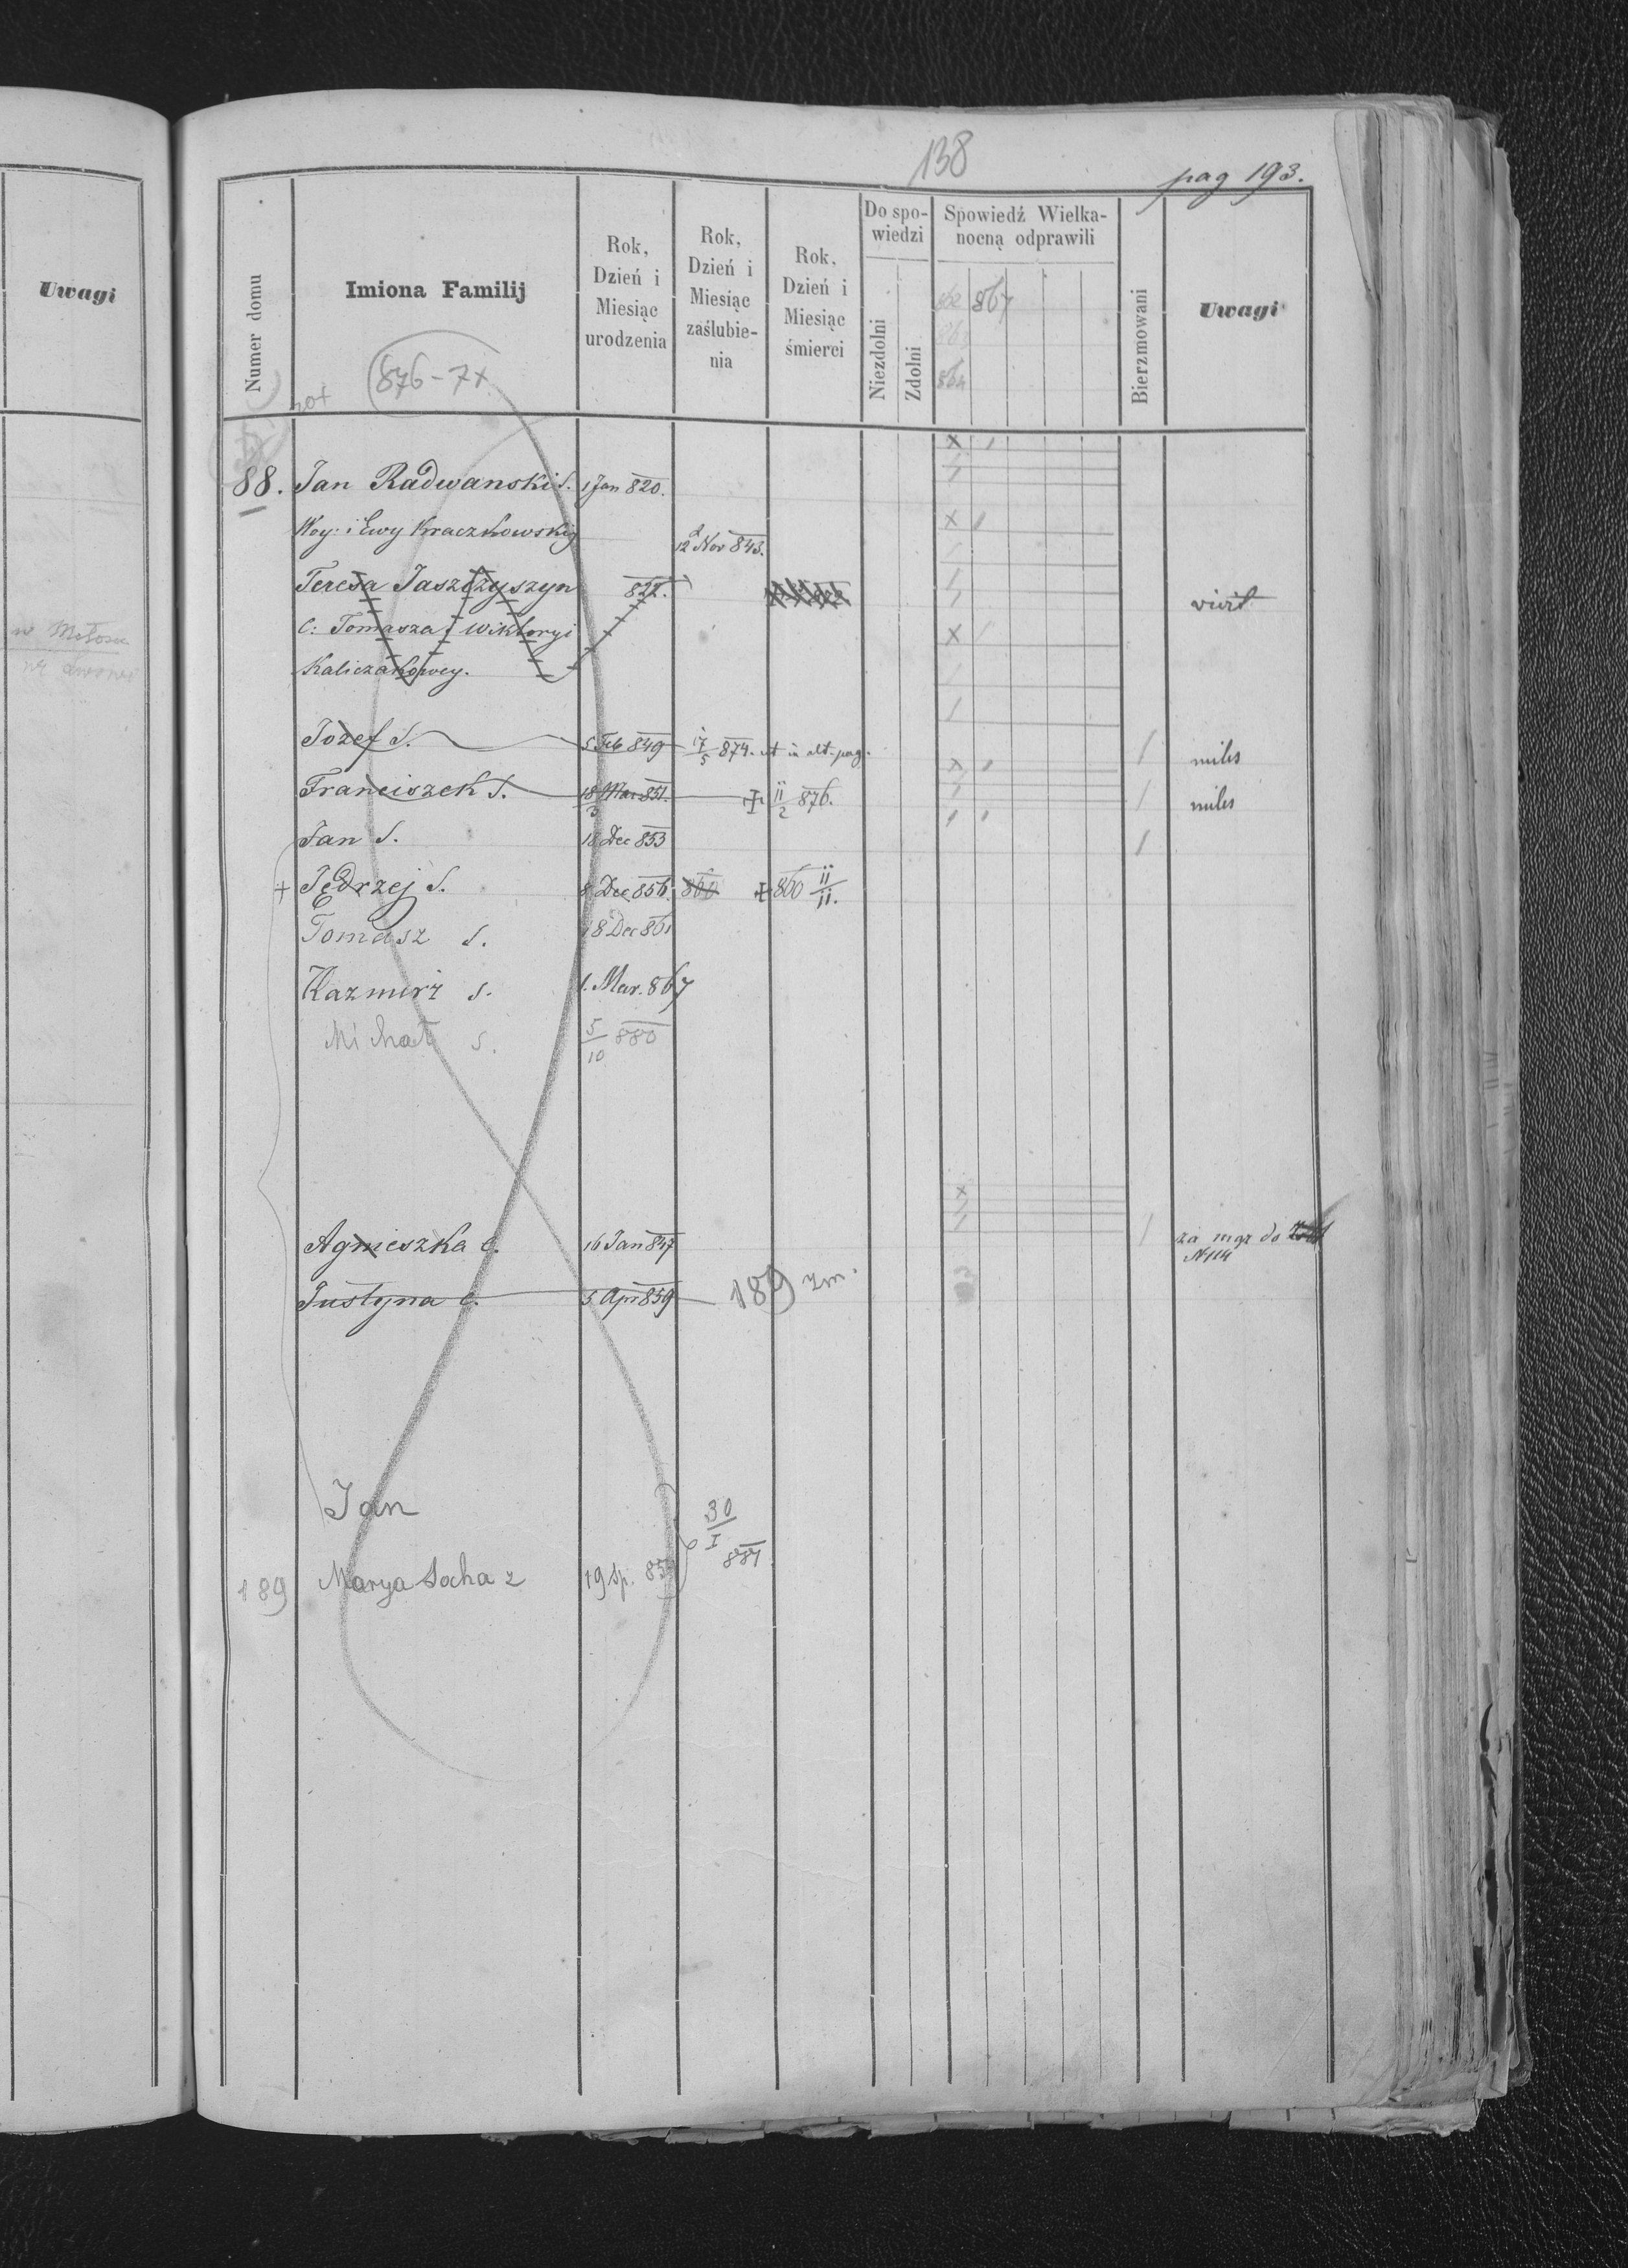 Uwagi
138
pag 193.
Numer domu
Imiona Familij
Rok, Dzień i Miesiąc urodzenia
Rok, Dzień i Miesiąc zaślubienia
Rok, Dzień i Miesiąc śmierci
Do spowiedzi
Niezdolni
Zdolni
Spowiedź Wielkanocną odprawili
862 867
864
Bierzmowani
Uwagi
876-7+
88. Jan Radwanski S. 1 Jan 820.
Woy: i Ewy Kraczkowskiy
12 Nov 843.
Teresa Jaszczyszyn 822.
C: Tomasza i Wiktoryi
Kaliczakowey.
Jozef S. 5 Feb 849 17/5 874. ut in alt. pag. miles
Franciszek S. 18 Mar 851. + 11/2 876. miles
Jan S. 18 Dec 853
+ Jędrzej S. 8 Dec 856. 860 + 860 11/11.
Tomasz S. 18 Dec 861
Kazmirz S. 1. Mar. 867
Michał S. 5/10 880
Agnieszka C. 16 Jan 847 za mąż do
N 114
Justyna C. 5 Apr 859 189 zm.
Jan
30/I 881
189 Marya Socha z 19 Sp. 859